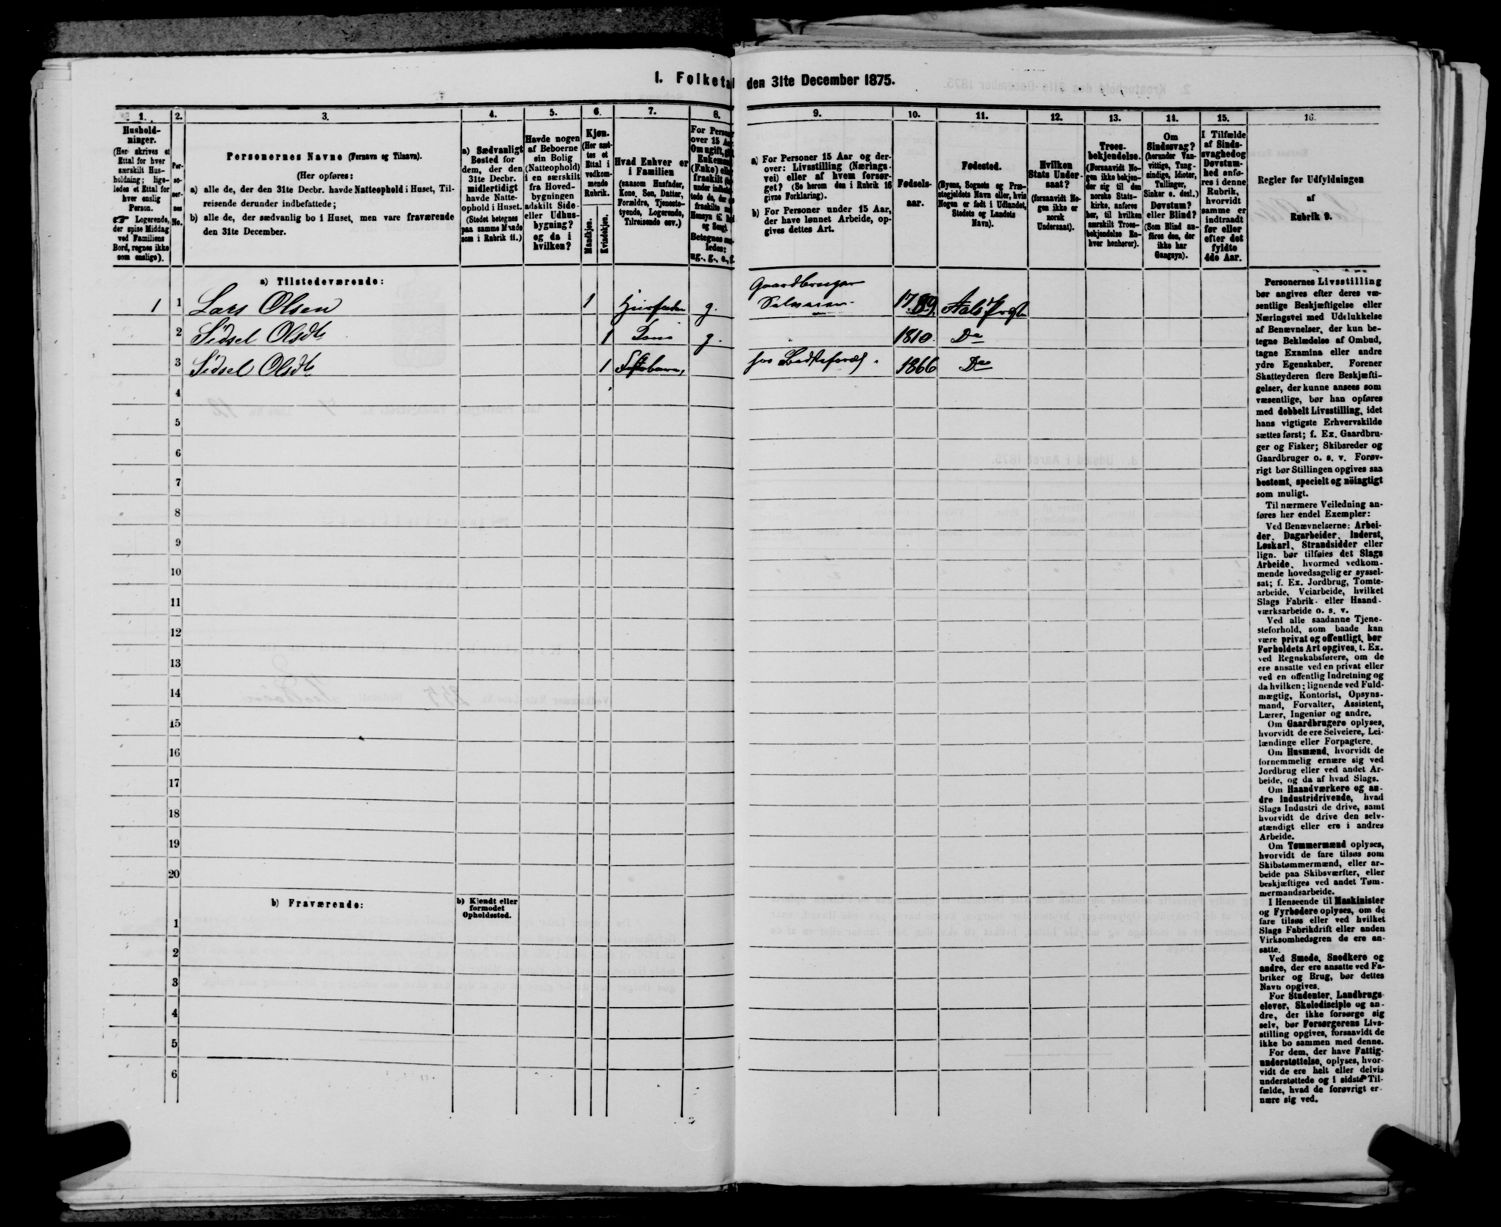 I. Folketal den 31te December 1875.
1. 2. 3. 4. 5. 6. 7. 8. 9. 10. 11. 12. 13. 14. 15. 16.
Hushold-
ninger.
(Her skrives et
Ettal for hver
særskilt Hus-
holdning; lige-
ledes et Ettal for
hver enslig
Person.
Logerende,
der spise Middag
ved Familiens
Bord, regnes ikke
som enslige).
Per-
so-
ner-
nes
No.
Personernes Navne (Fornavn og Tilnavn).
(Her opføres:
a) alle de, der den 31te Decbr. havde Natteophold i Huset, Til-
reisende derunder indbefattede;
b) alle de, der sædvanlig bo i Huset, men vare fraværende
den 31te December.
a) Sædvanligt
Bosted for
dem, der den
31te Decbr.
midlertidigt
havde Natte-
ophold i Huset.
(Stedet betegnes
paa samme Maade
som i Rubrik 11.)
Havde nogen
af Beboerne
sin Bolig
(Natteophold)
i en særskilt
fra Hoved-
bygningen
adskilt Side-
eller Udhus-
bygning?
og da i
hvilken?
Kjøn.
(Her sæt-
tes et
Ettal i
vedkom-
mende
Rubrik.
Mandkjøn.
Kvindekjøn.
Hvad Enhver er
i Familien
(saasom Husfader,
Kone, Søn, Datter,
Forældre, Tjeneste-
tyende, Logerende,
Tilreisende osv.)
a) For Personer 15 Aar og der-
over: Livsstilling (Nærings-
vei) eller af hvem forsør-
get? (Se herom den i Rubrik 16
givne Forklaring).
b) For Personer under 15 Aar,
der have lønnet Arbeide, op-
gives dettes Art.
Fødsels-
aar.
Fødested.
(Byens, Sognets og Præ-
stegjeldets Navn eller, hvis
Nogen er født i Udlandet,
Stedets og Landets
Navn).
Hvilken
Stats Under-
saat?
(forsaavidt No-
gen ikke er
norsk
Undersaat).
Troes-
bekjendelse.
(Forsaavidt No-
gen ikke bekjen-
der sig til den
norske Stats-
kirke, anføres
her, til hvilken
særskilt Troes-
bekjendelse En-
hver henhører).
Om
Sindssvag?
(herunder Van-
vittige, Tung-
sindige, Idioter,
Tullinger,
Sinker o. desl.)
Døvstum?
eller Blind?
(Som Blind an-
føres den, der
ikke har
Gangsyn).
I Tilfælde
af Sinds-
svaghed og
Døvstum-
hed anfø-
res i denne
Rubrik,
hvorvidt
samme er
indtraadt
før eller
efter det
fyldte
4de Aar.
Regler for Udfyldningen
af
Rubrik 9.
a) Tilstedeværende:
1 1 Lars Olsen 1 Husfader g. Gaardbruger Selveier 1789 Aals Prgl
2 Sidsel Olsdt 1 Kone g. 1810 Do
3 Sidsel Olsdt 1 1866 Do
4
5
6
7
8
9
10
11
12
13
14
15
16
17
18
19
20
b) Fraværende:
b) Kjendt eller
formodet
Opholdssted.
1
2
3
4
5
6
Personernes Livsstilling
bør angives efter deres væ-
sentlige Beskjæftigelse eller
Næringsvei med Udelukkelse
af Benævnelser, der kun be-
tegne Beklædelse af Ombud,
tagne Examina eller andre
ydre Egenskaber. Forener
Skatteyderen flere Beskjæfti-
gelser, der kunne ansees som
væsentlige, bør han opføres
med dobbelt Livsstilling, idet
hans vigtigste Erhvervskilde
sættes først; f. Ex. Gaardbru-
ger og Fisker; Skibsreder og
Gaardbruger o. s. v. Forøv-
rigt bør Stillingen opgives saa
bestemt, specielt og nöiagtigt
som muligt.
Til nærmere Veiledning an-
føres her endel Exempler:
Ved Benævnelserne: Arbei-
der, Dagarbeider, Inderst,
Løskarl, Strandsidder eller
lign. bør tilføies det Slags
Arbeide, hvormed vedkom-
mende hovedsagelig er syssel-
sat; f. Ex. Jordbrug, Tomte-
arbeide, Veiarbeide, hvilket
Slags Fabrik- eller Haand-
værksarbeide o. s. v.
Ved alle saadanne Tjene-
steforhold, som baade kan
være privat og offentligt, bør
Forholdets Art opgives, t. Ex.
ved Regnskabsførere, om de
ere ansatte ved en privat eller
ved en offentlig Indretning og
da hvilken; lignende ved Fuld-
mægtig, Kontorist, Opsyns-
mand, Forvalter, Assistent,
Lærer, Ingeniør og andre.
Om Gaardbrugere oplyses,
hvorvidt de ere Selveiere, Lei-
lændinge eller Forpagtere.
Om Husmænd, hvorvidt de
fornemmelig ernære sig ved
Jordbrug eller ved andet Ar-
beide, og da af hvad Slags.
Om Haandværkere og an-
dre Industridrivende, hvad
Slags Industri de drive, samt
hvorvidt de drive den selv-
stændigt eller ere i andres
Arbeide.
Om Tømmermænd oplyses,
hvorvidt de fare tilsøs som
Skibstømmermænd, eller ar-
beide paa Skibsværfter, eller
beskjæftiges ved andet Tøm-
mermandsarbeide.
I Henseende til Maskinister
og Fyrbødere oplyses, om de
fare tilsøs eller ved hvilket
Slags Fabrikdrift eller anden
Virksomhedsgren de ere an-
satte.
Ved Smede, Snedkere og
andre, der ere ansatte ved Fa-
briker og Brug, bør dettes
Navn opgives.
For Studenter, Landbrugs-
elever, Skoledisciple og an-
dre, der ikke forsørge sig
selv, bør Forsørgerens Livs-
stilling opgives, forsaavidt de
ikke bo sammen med denne.
For dem, der have Fattig-
understøttelse, oplyses, hvor-
vidt de ere helt eller delvis
understøttede og i sidste Til-
fælde, hvad de forøvrigt er-
nære sig ved.